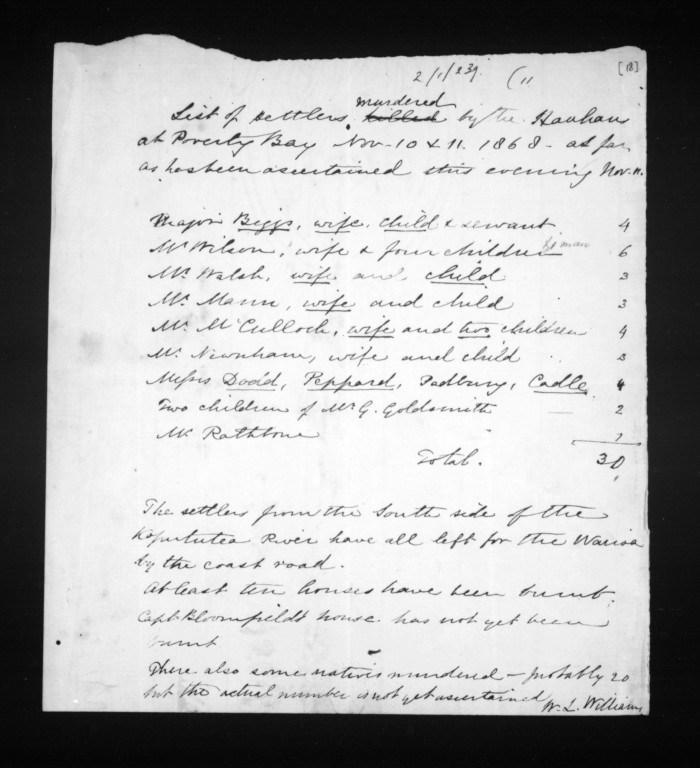 2/1/239. (11
[18]
murdered
List of settlers killed by the Hauhaus
at Poverty Bay Nov. 10 & 11. 1868 - as far
as has been ascertained this evening Nov. 11.
Major Biggs, wife, child & servant 4
Mr Wilson, wife & four children & man 6
Mr. Walsh, wife and child 3
Mr. Mann, wife and child 3
Mr. McCulloch, wife and two children 4
Mr. Newnham, wife and child 3
Messrs Dodd, Peppard, Padbury, Cadle 4
Two children of Mr G. Goldsmith 2
Mr Rathbone 1
Total. 30
The settlers from the South side of the
Kopututea River have all left for the Wairoa
by the coast road.
At least ten houses have been burnt.
Capt. Bloomfield's house has not yet been
burnt
There also some natives murdered - probably 20
but the actual number is not yet ascertained
W. L. Williams